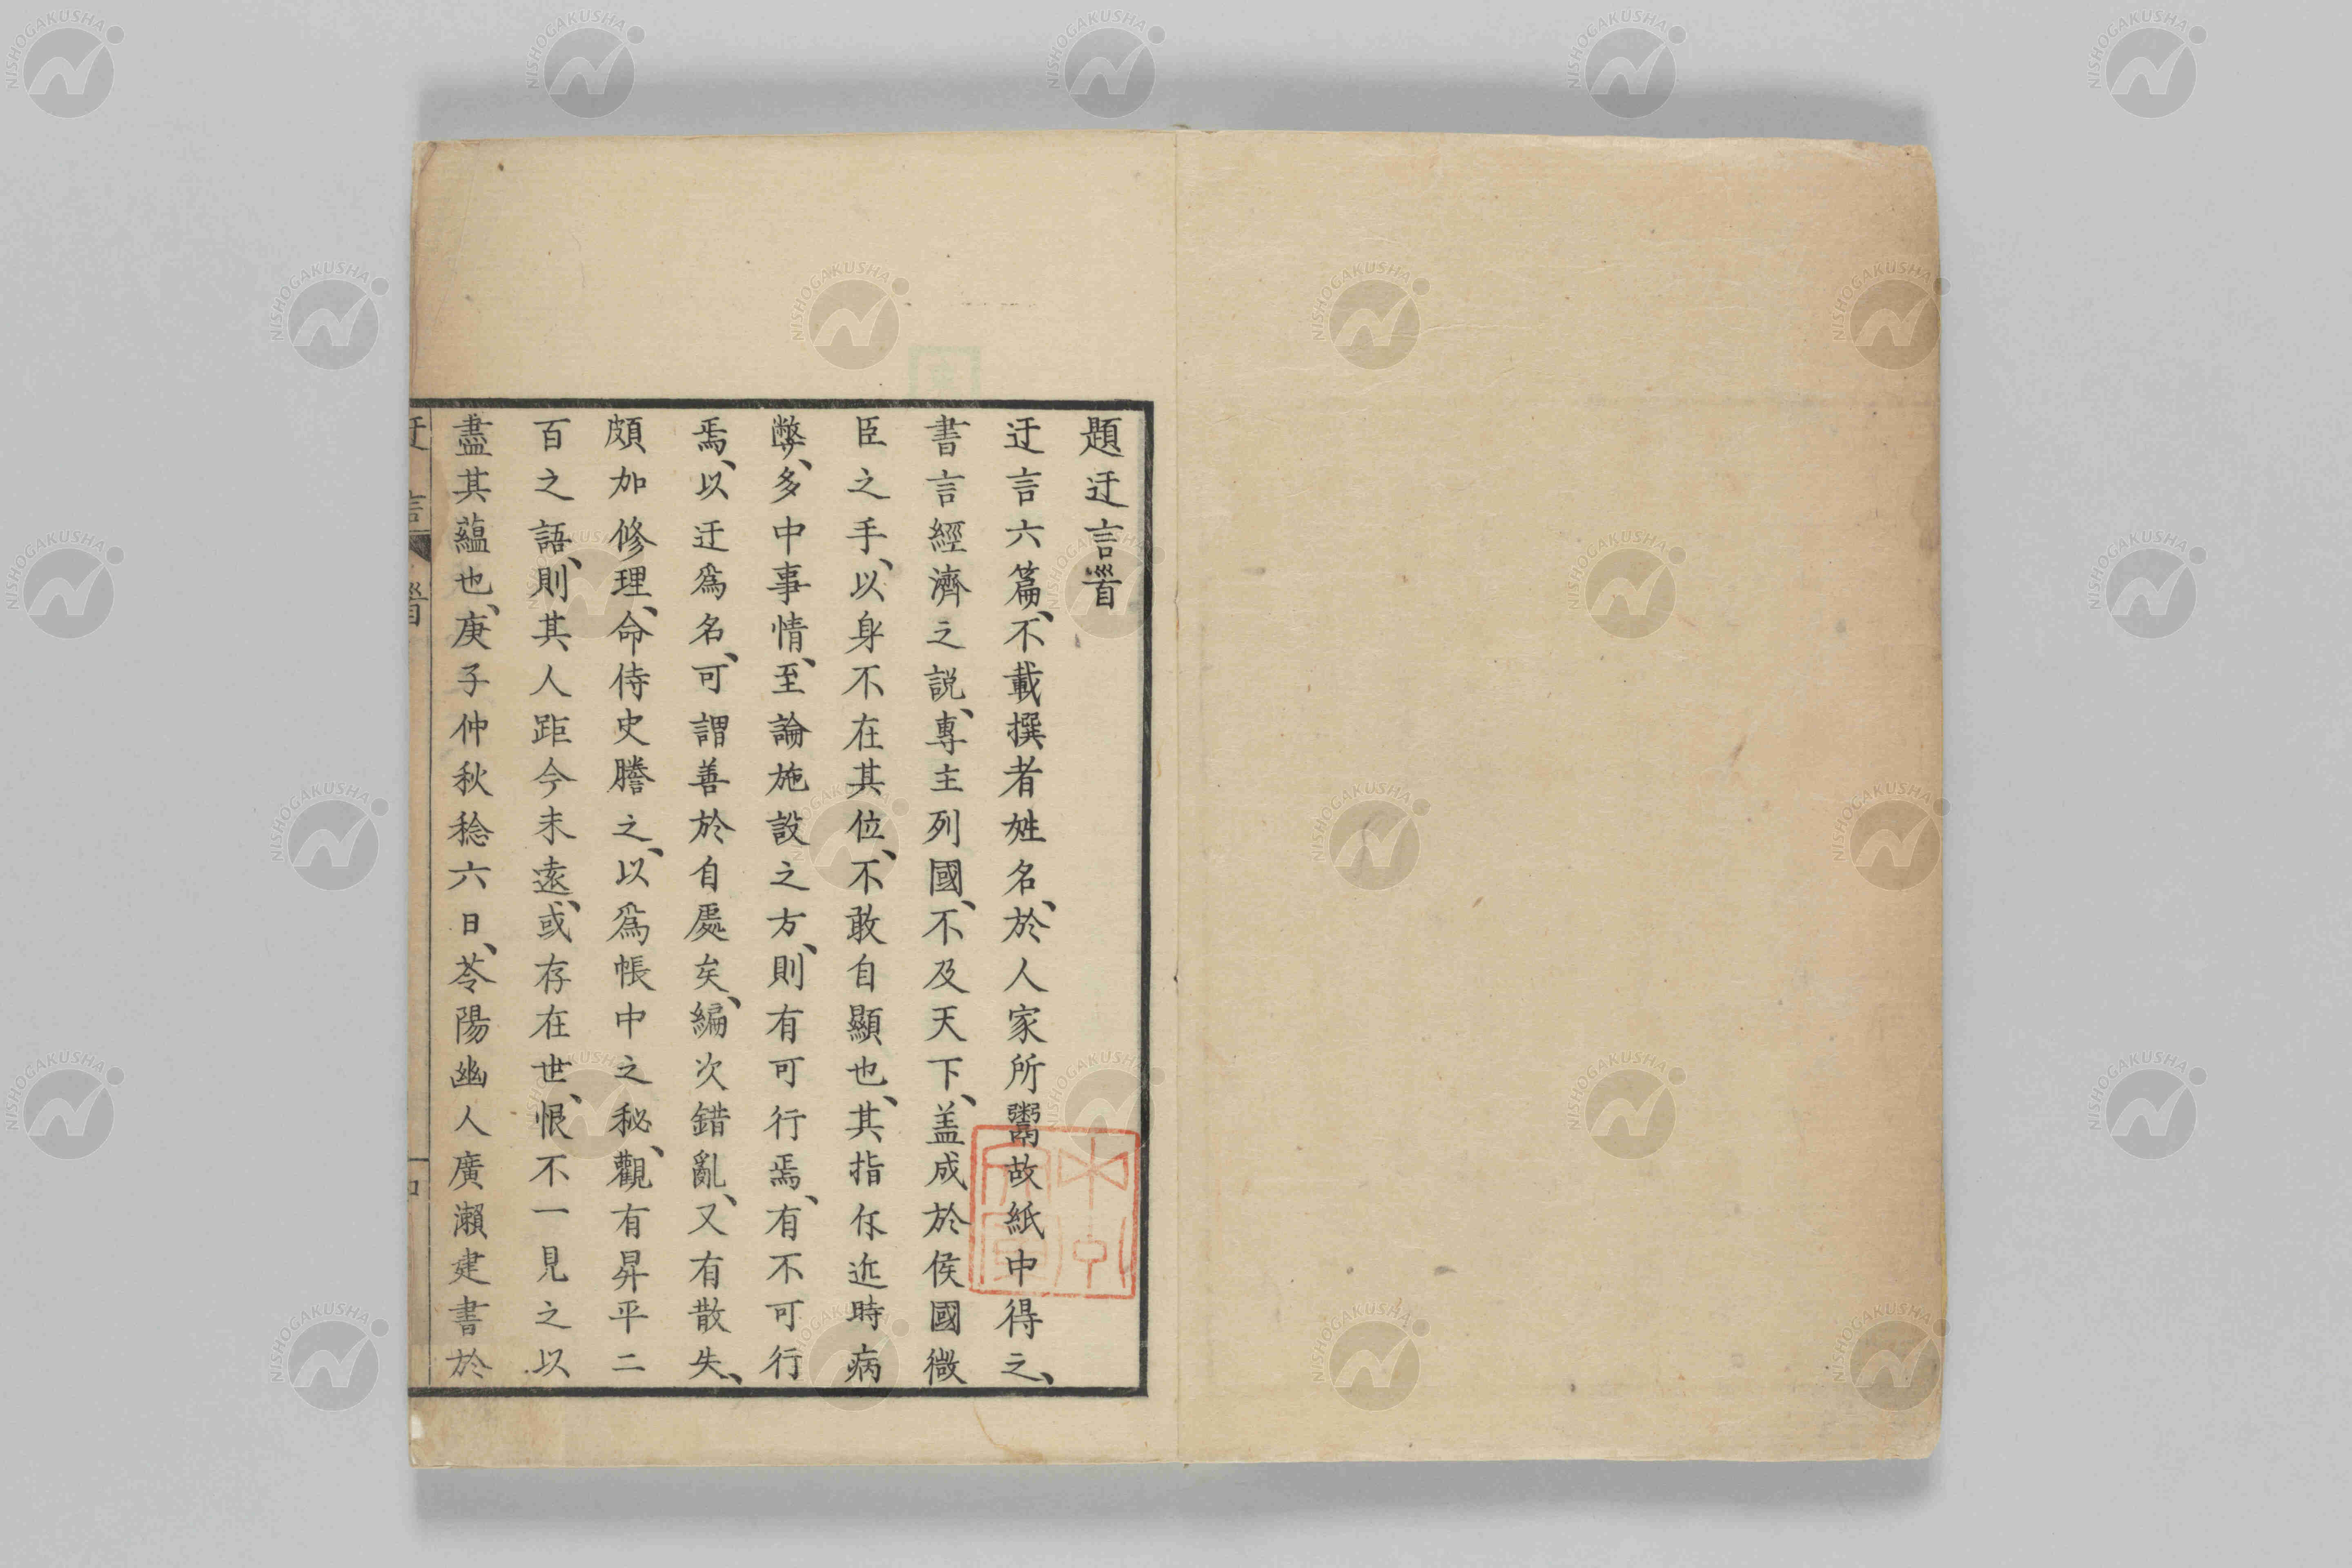 題迂言首
迂言六篇、不載撰者姓名、於人家所鬻故紙中得之、
書言經濟之説、專主列國、不及天下、盖成於侯國微
臣之手、以身不在其位、不敢自顯也、其指仸近時病
弊、多中事情、至論施設之方、則有可行焉、有不可行
焉、以迂爲名、可謂善於自處矣、編次錯亂、又有散失、
頗加修理、命侍史謄之、以爲帳中之秘、觀有昇平二
百之語、則其人距今未遠、或存在世、恨不一見之以
盡其蘊也、庚子仲秋稔六日、苓陽幽人廣瀬建書於
迂言 首
NISHOGAKUSHA